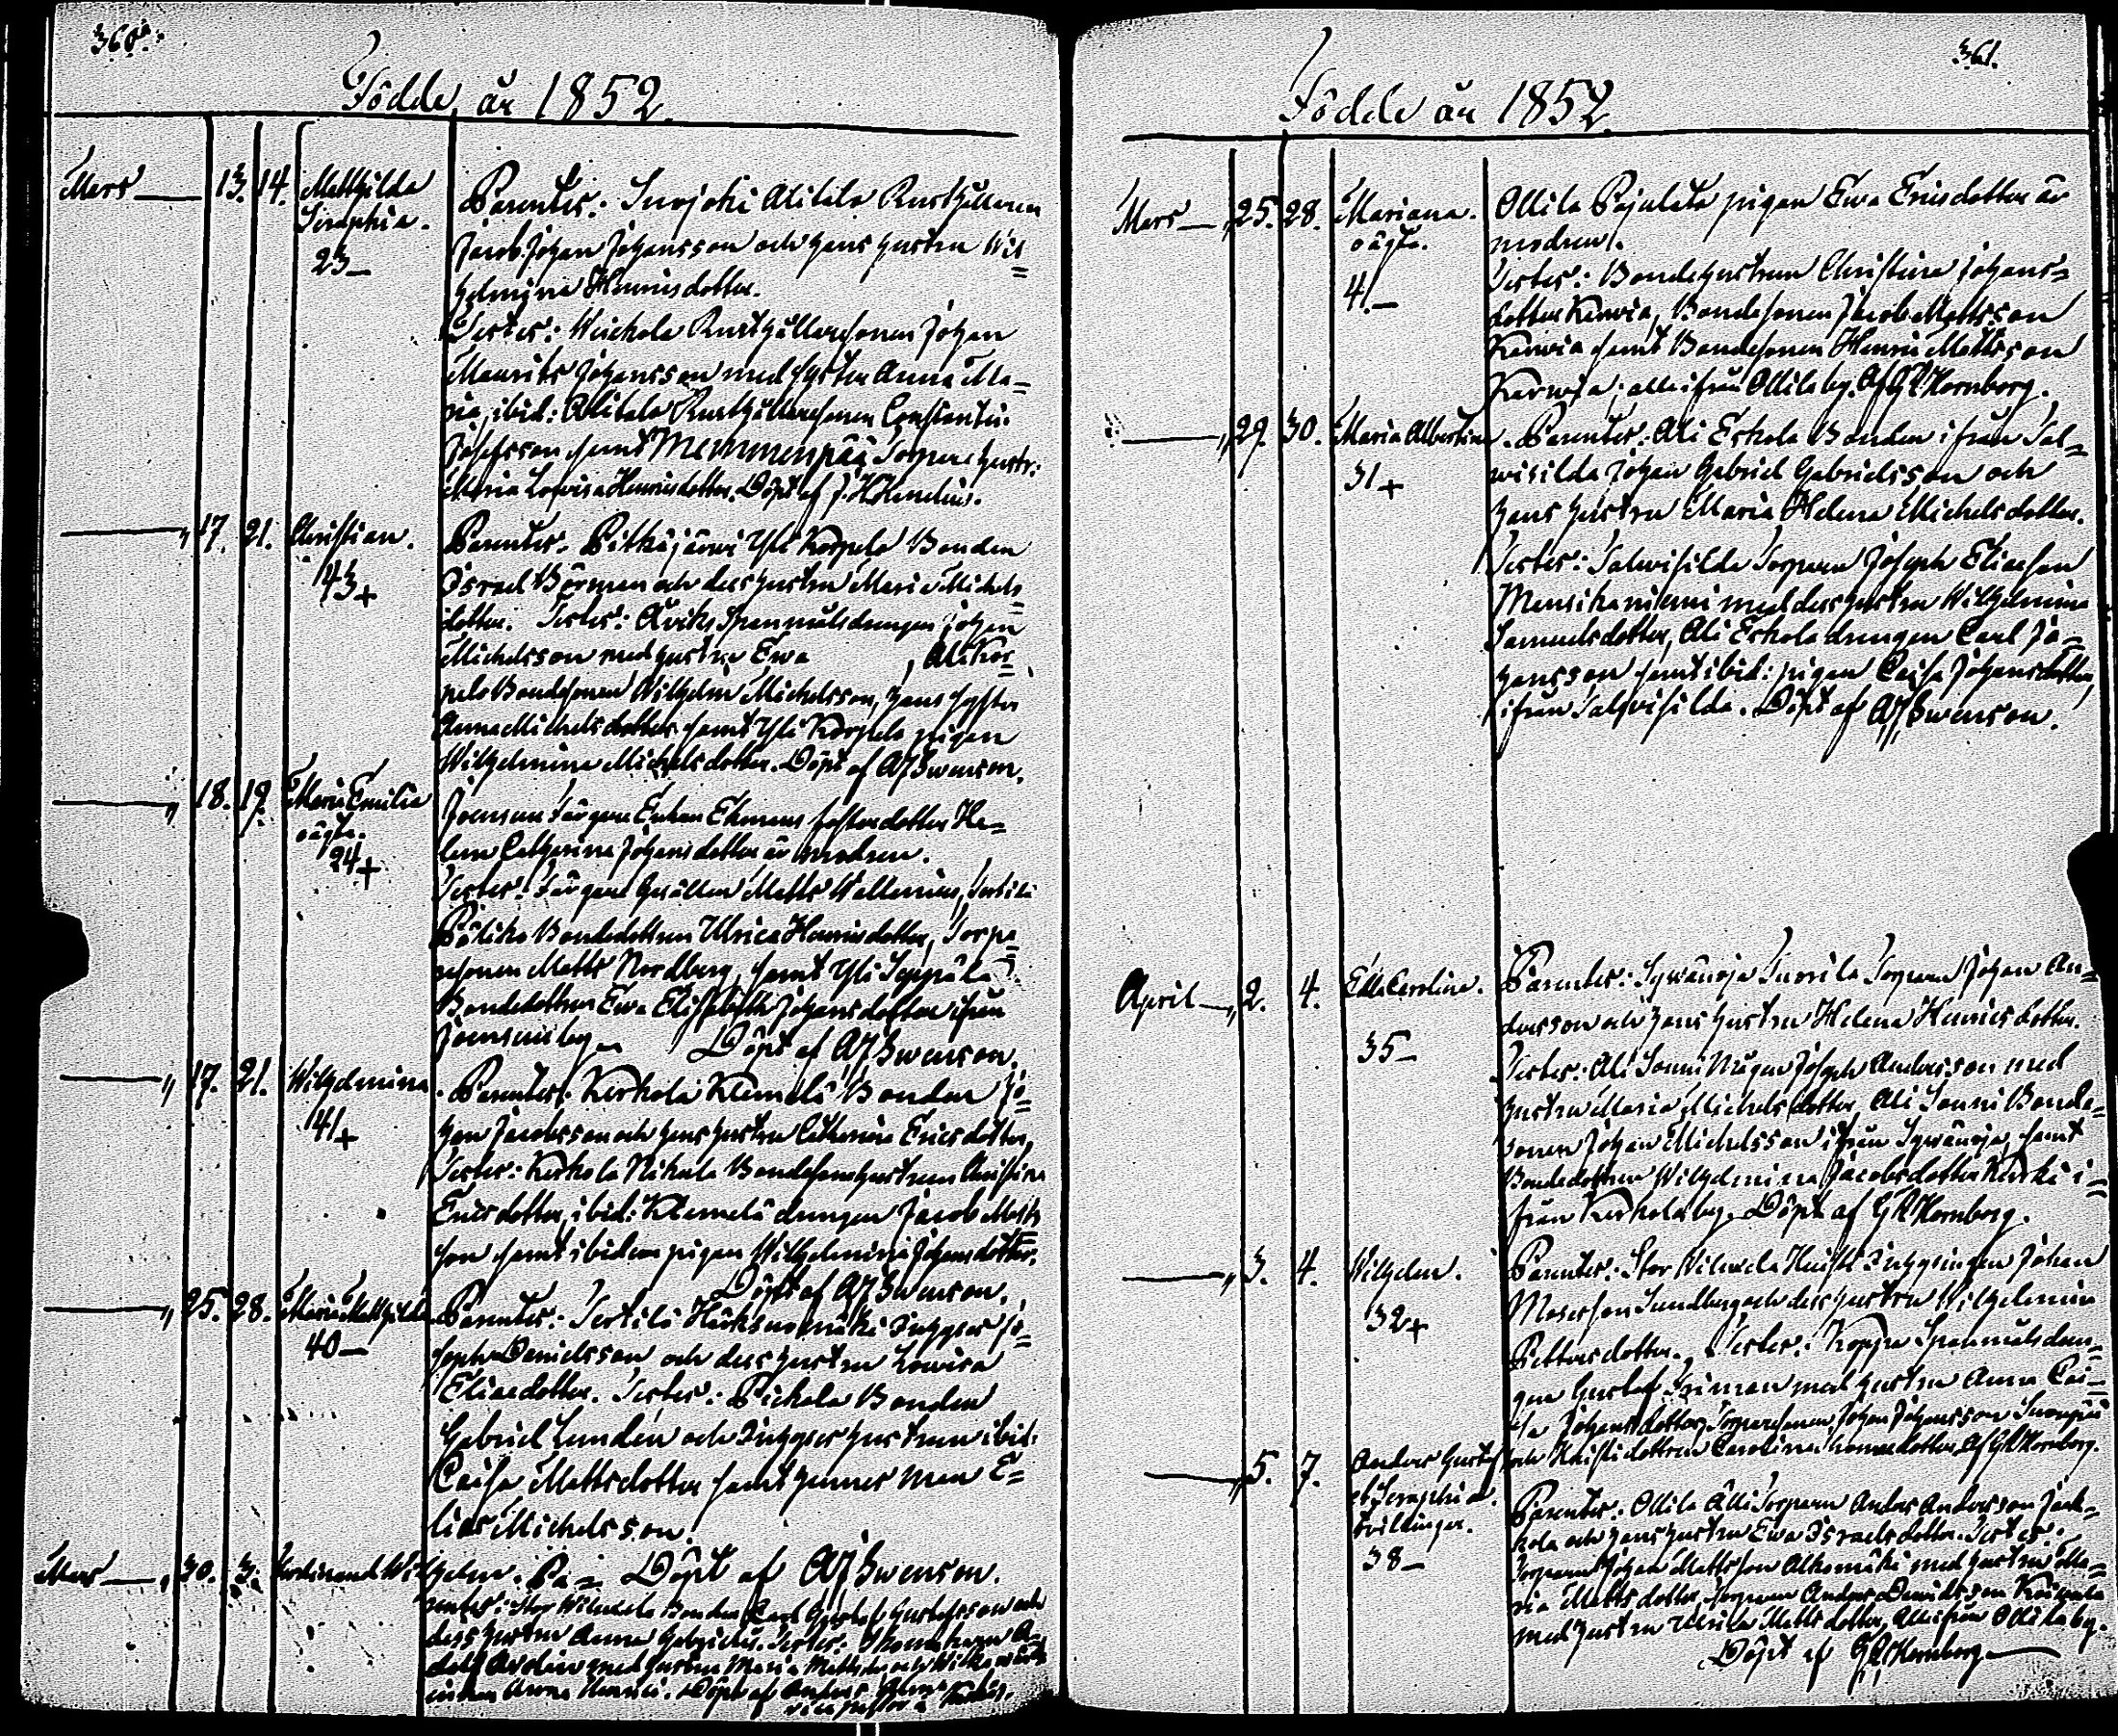 360.
Födde år 1852.
Mars 13. 14. Mathilda Parentes: Suojoki Alitalo Rusthållaren
Seraphia. Jacob Johan Johansson och hans hustru Wil=
23— helmina Henricsdotter.
Testes: Weichola Rusthållaresonen Johan
Maurits Johansson med syster Anna Ma=
ria, ibid: Alitalo Rusthållaresonen Constantin
Josefsson samt Torpare hustr:
Maria Lovisa Henricsdotter. Döpt af
— " 17. 21. Christian. Parentes. Pitkäjärvi Yli Korpela Bonden
43+ Israel Börman och dess hustru Maria Michels=
dotter. Testes: Åviks Spanmålsdrengen Johan
Michelsson med hustru Ewa , Ali Kor=
pela Bondesonen Wilhelm Michelsson, hans syster
Anna Michelsdotter samt Yli Korpela pigan
Wilhelmina Michelsdotter. Döpt af AJ Swenson.
— " 18. 19. Maria Emilia Joensuu Färgare Enkan Ekmans fosterdotter He=
oägta. lena Catharina Johansdotter är modren.
24+ Testes: Färgare Gesällen Matts Wallenius,
Bondedottren Ulrica Henricsdotter, Torpa=
resonen Matts Nordberg, samt Yli Seppälä
Bondedottren Ewa Elisabeth Johansdotter ifrån
Joensuu by. Döpt af AJ Swenson.
— " 17. 21. Wilhelmina. Parentes: Kerkola Klemelä Bonden Jo=
41+ han Jacobsson och hans hustru Catharina Ericsdotter,
Testes: Kerkola Nikula Bondesonhustrun Christina
Ericsdotter, ibid: Klemelä drengen Jacob Matts=
son samt ibidem pigan Wilhelmina Johansdotter.
Döpt af AJ Swenson.
— " 25. 28. Maria Mathilda Parentes: Terttilä Inhyses Jo=
40— seph Danielsson och dess hustru Lovisa
Eliaedotter. Testes: Pichala Bonden
Gabriel Lundén och Inhyses hustrun ibid:
Caisa Mattsdotter samt hennes man E=
lias Michelsson.
Mars — " 30. 3. Ferdinand Wilhelm. Pa= Döpt af AJ Swenson.
rentes: Stor Wilmila Bonden Carl Gustaf Gustafsson och
dess hustru Anna Gabrielsd. Testes: A=
dolf med hustru Maria Mattsdr. och
Anna Henricsd. Döpt af
361.
Födde år 1852.
Mars — " 25. 28. Mariana. Ollila Pajulata pigan Ewa Ericsdotter är
oägta. modren.
4.— Testes: Bondehustrun Christina Johans=
dotter Karvia, Bondesonen Jacob Mattsson
Karvia samt Bondesonen Henric Mattsson
Karvia; alle ifrån Ollila by. Af GR Hornborg.
— " 29. 30. Maria Albertina. Parentes: Ali Eskola Bonden ifrån Sal=
31+ wisilda Johan Gabriel Gabrielsson och
hans hustru Maria Helena Michelsdotter.
Testes: Salwisilda Torparen Joseph Eliaeson
med dess hustru Wilhelmina
Samuelsdotter, Ali Eskola drengen Carl Jo=
hansson samt ibid: pigan Caisa Johansdotter,
ifrån Salwisilda. Döpt af AJ Swenson.
April — " 2. 4. Edla Carolina. Parentes: Sywänoja Suorila Torparen Johan An=
dersson och hans hustru Helena Henricsdotter.
35— Testes: Ali Sonni Mågen Joseph Andersson med
hustru Maria Michelsdotter, Ali Sonni Bonde=
sonen Johan Michelsson ifrån Sywänoja, samt
Bondedottren Wilhelmina Jacobsdotter Kurki i=
från Kerkola by. Döpt af GR Hornborg.
— " 3. 4. Wilhelm. Parentes: Stor Wilmila Inhysingen Johan
32+ Moseson Sundberg och dess hustru Wilhelmina
Pettersdotter. Testes: Koppa Spanmålsdren=
gen Gustaf Friman med hustru Anna Cai=
sa Johansdotter, Torparesonen Johan Johansson
och dottren Carolina Thomasdotter, Af GR Hornborg.
— " 5. 7. Anders Gustaf
et Seraphia. Parentes: Ollila Alli Torparen Anders Andersson Jack=
tvillingar. kola och hans hustru Ewa Israelsdotter. Testes:
38— Torparen Johan Mattsson Alhomäki med hustru Ma=
ria Mattsdotter, Torparen Anders Davidsson
med hustru Ulrika Mattsdotter, Alla ifrån Ollila by.
Döpt af GR Hornborg